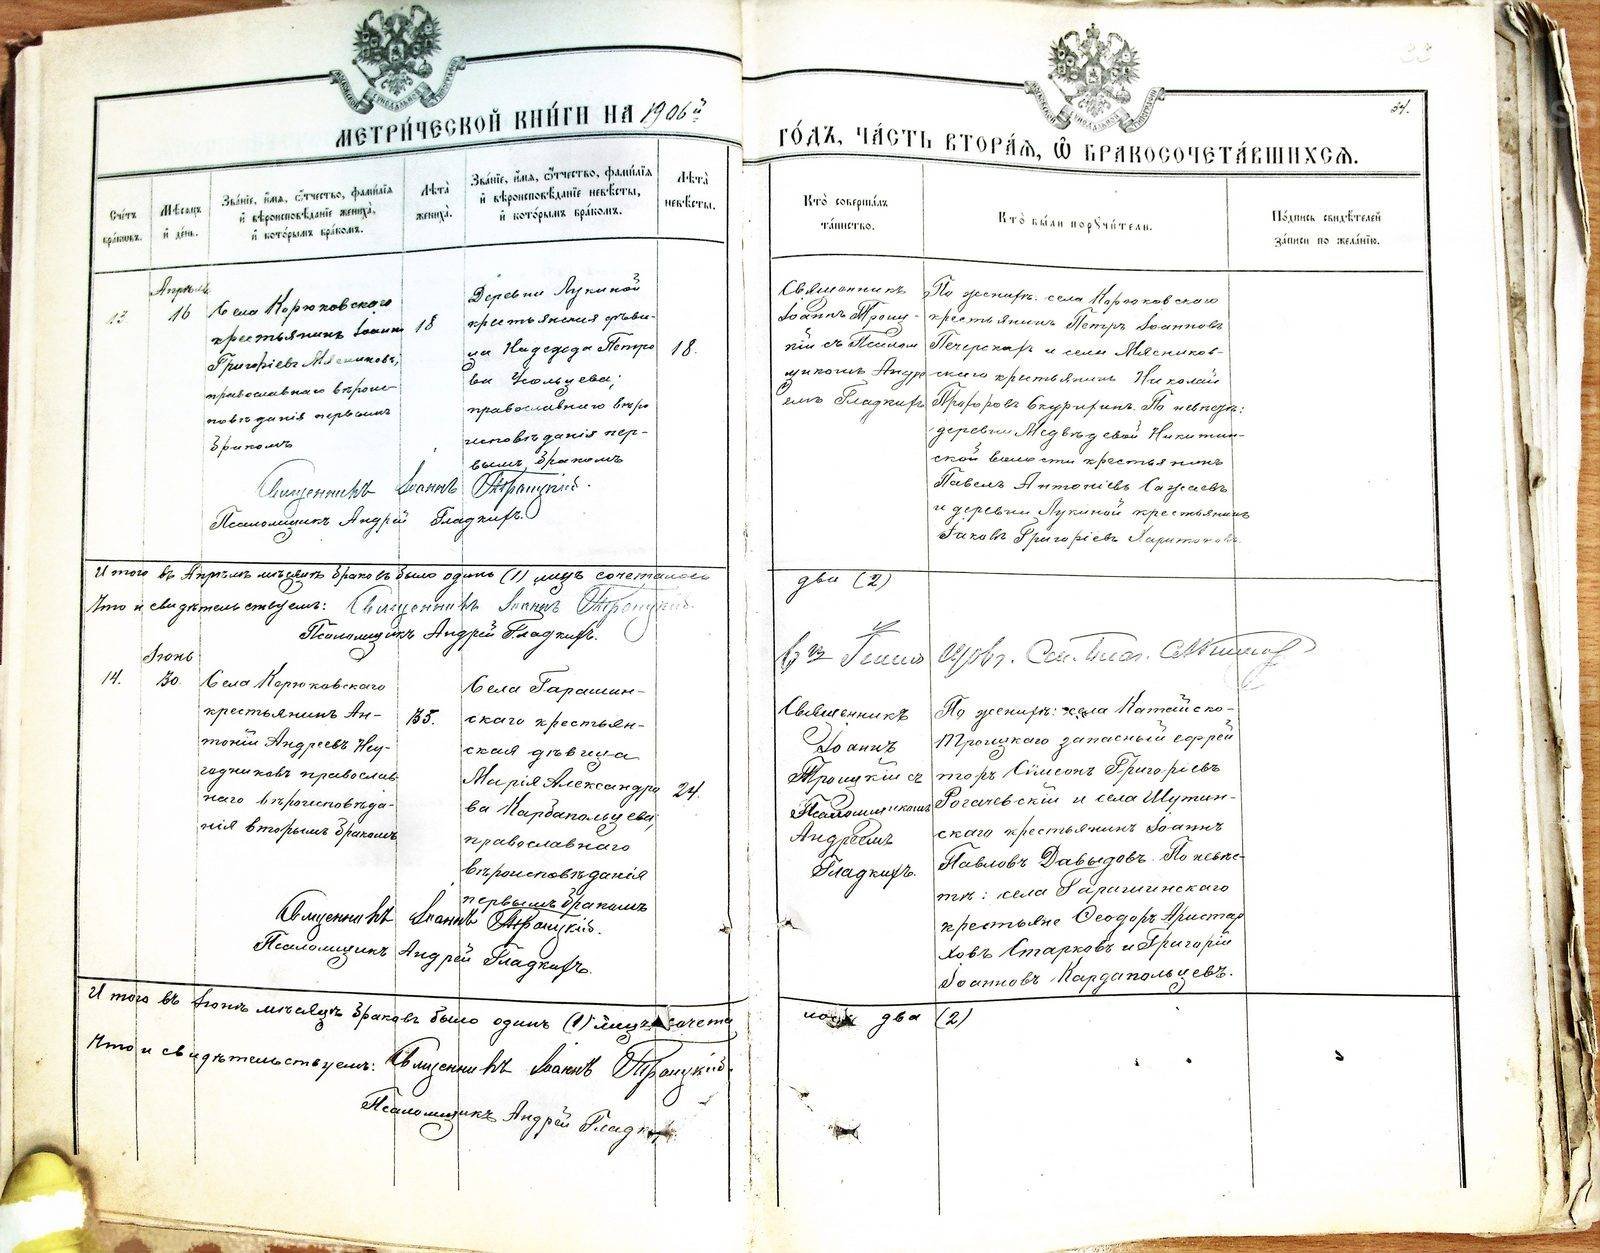 МЕТРИ́ЧЕСКОЙ КНИ́ГИ НА 1906й
ГО́ДЪ, ЧА́СТЬ ВТОРА́Я, Ѡ БРАКОСОЧЕТА́ВШИХСЯ.
34.
Сче́тъ бра́ковъ.
Мѣ́сяцъ и҆ де́нь.
Зва́нїе, и҆́мя, ѻ҆́тчество, фами́лїя
и҆ вѣроисповѣ́данїе жениха̀,
и҆ кото́рымъ бра́комъ.
Лѣта̀
жениха̀.
Зва́нїе, и҆́мя, ѻ҆́тчество, фами́лїя
и҆ вѣроисповѣ́данїе невѣ́сты,
и҆ кото́рымъ бра́комъ.
Лѣта̀
невѣ́сты.
Кто̀ соверша́лъ
та́инство.
Кто̀ бы́ли порꙋчи́тели.
По́дпись свидѣ́телей
за́писи по жела́нїю.
13.
Апрѣль
16
Села Корюковскаго
крестьянинъ Іоаннъ
Григоріевъ Мясниковъ,
православнаго вѣроис-
повѣданія первымъ
бракомъ
18
Деревни Лукиной
крестьянская дѣви-
ца Надежда Петро
ва Усольцева;
православнаго вѣро
исповѣданія пер-
вымъ бракомъ
18.
Священникъ Іоаннъ Троицкій.
Псаломщикъ Андрей Гладкихъ.
Священникъ
Іоаннъ Троиц-
кій съ Псалом
щикомъ Андре
емъ Гладкихъ
По женихѣ: села Корюковскаго
крестьянинъ Петръ Іоанновъ
Печеркинъ и села Мясников-
скаго крестьянинъ Николай
Прохоровъ Скурихинъ. По невѣстѣ:
деревни Медвѣдевой Никитин-
ской волости крестьянинъ
Павелъ Антоніевъ Сажаевъ
и деревни Лукиной крестьянинъ
Іаковъ Григоріевъ Харитоновъ.
Итого въ Апрѣлѣ мѣсяцѣ браковъ было одинъ (1) лицъ сочеталось
два (2)
Что и свидѣтельствуемъ: Священникъ Іоаннъ Троицкій.
Псаломщикъ Андрей Гладкихъ.
14.
Іюнь
30.
Села Корюковскаго
крестьянинъ Ан-
тоній Андреевъ Неу-
годниковъ православ
наго вѣроисповѣда-
нія вторымъ бракомъ
35.
Села Гарашин-
скаго крестьян-
ская дѣвица
Марія Александро
ва Кардапольцева;
православнаго
вѣроисповѣданія
первымъ бракомъ
24.
Священникъ Іоаннъ Троицкій.
Псаломщикъ Андрей Гладкихъ.
Священникъ
Іоаннъ
Троицкій съ
Псаломщикомъ
Андреемъ
Гладкихъ.
По женихѣ: села Катайско-
Троицкаго запасный ефрей
торъ Сѵмеонъ Григоріевъ
Рогачевскій и села Шутин-
скаго крестьянинъ Іоаннъ
Павловъ Давыдовъ. По невѣс-
тѣ: села Гарашинскаго
крестьяне Ѳеодоръ Аристар
ховъ Старковъ и Григорій
Іоанновъ Кардапольцевъ.
Итого въ Іюнѣ мѣсяцѣ браковъ было одинъ (1) лицъ сочета
лось два (2)
Что и свидѣтельствуемъ: Священникъ Іоаннъ Троицкій.
Псаломщикъ Андрей Гладкихъ